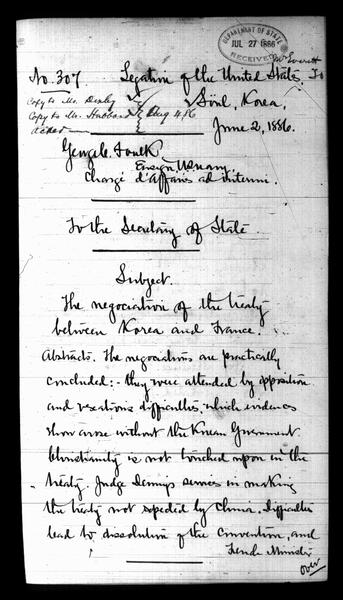 DEPARTMENT OF STATE
JUL 27 1886
RECEIVED
Mr Everett
No. 307 Legation of the United States
Copy to Mr. Denby Söul, Korea,
Copy to Mr. Hubbard Aug 4/86
June 2, 1886.
George C. Foulk,
Ensign, U.S. Navy
Chargé d'Affaires ad interim.
To the Secretary of State
Subject.
The negociation of the treaty
between Korea and France.
Abstracts. The negociations are practically
concluded:- they were attended by opposition
and vexatious difficulties, which evidences
show arose without the Korean Government
Christianity is not touched upon in the
treaty. Judge Denny's services in making
the treaty not impeded by China. Difficulties
lead to dissolution of the convention, and
French Minister
over